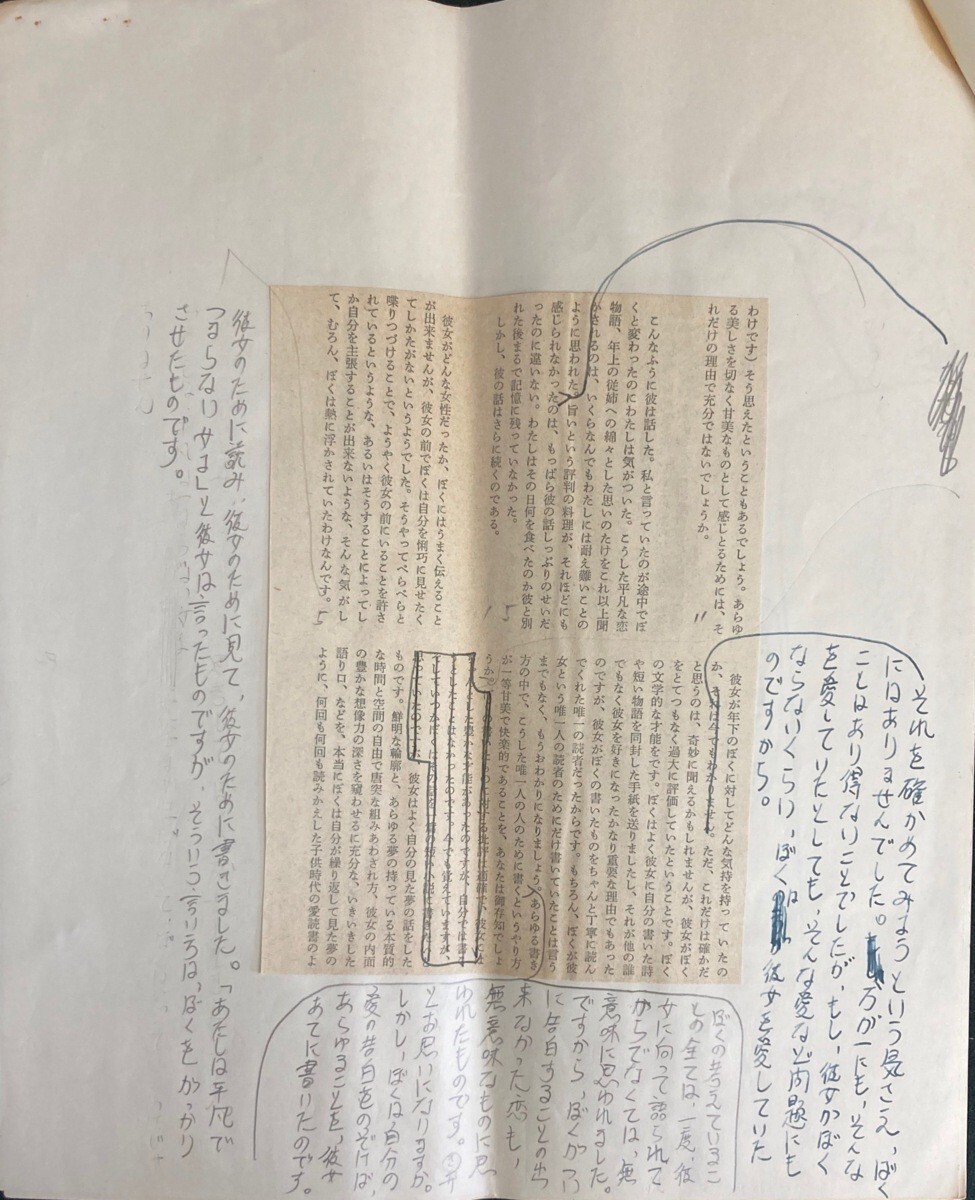 わけです）そう思えたということもあるでしょう。あらゆ
る美しさを切なく甘美なものとして感じとるためには、そ
れだけの理由で充分ではないでしょうか。
こんなふうに彼は話した。私と言っていたのが途中でぼ
くと変わったのにわたしは気がついた。こうした平凡な恋
物語、年上の従姉への綿々とした思いのたけをこれ以上聞
かされるのは、いくらなんでもわたしには耐え難いことの
ように思われた。旨いという評判の料理が、それほどにも
感じられなかったのは、もっぱら彼の話しっぷりのせいだ
ったのに違いない。わたしはその日何を食べたのか彼と別
れた後まるで記憶に残っていなかった。
しかし、彼の話はさらに続くのである。
彼女がどんな女性だったか、ぼくにはうまく伝えること
が出来ませんが、彼女の前でぼくは自分を悧巧に見せたく
てしかたがないというようでした。そうやってぺらぺらと
喋りつづけることで、ようやく彼女の前にいることを許さ
れているというような、あるいはそうすることによってし
か自分を主張することが出来ないような、そんな気がし
て、むろん、ぼくは熱に浮かされていたわけなんです。
11
5
5
それを確かめてみようという気さえ、ぼく
にはありませんでした。万が一にも、そんな
ことはあり得ないことでしたが、もし、彼女がぼく
を愛していたとしても、そんな愛など問題にも
ならないくらい、ぼくは彼女を愛していた
のですから。
彼女が年下のぼくに対してどんな気持を持っていたの
か、それは今でもわかりません。ただ、これだけは確かだ
と思うのは、奇妙に聞えるかもしれませんが、彼女がぼく
をとてつもなく過大に評価していたということです。ぼく
の文学的な才能をです。ぼくはよく彼女に自分の書いた詩
や短い物語を同封した手紙を送りましたし、それが他の誰
でもなく彼女を好きになったかなり重要な理由でもあった
のですが、彼女がぼくの書いたものをちゃんと丁寧に読ん
でくれた唯一の読者だったからです。もちろん、ぼくが彼
女という唯一人の読者のためにだけ書いていたことは言う
までもなく、もうおわかりになりましょう。あらゆる書き
方の中で、こうした唯一人の人のために書くというやり方
が一等甘美で快楽的であることを、あなたは御存知でしょ
うか。
彼女はよく自分の見た夢の話をした
ものです。鮮明な輪郭と、あらゆる夢の持っている本質的
な時間と空間の自由で唐突な組みあわされ方、彼女の内面
の豊かな想像力の深さを窺わせるに充分な、いきいきした
語り口、などを、本当にぼくは自分が繰り返して見た夢の
ように、何回も何回も読みかえした子供時代の愛読書のよ
ぼくの考えているこ
との全ては、一度、彼
女に向って語られて
からでなくては、無
意味に思われました。
ですから、ぼくがつい
に告白することの出
来なかった恋も、
無意味なものに思
われたものです。
とお思いになりますか。
しかし、ぼくは、自分の
愛の告白をのぞけば、
あらゆることを、彼女
あてに書いたのです。
彼女のために読み、彼女のために見て、彼女のために書きました。「あたしは平凡で
つまらない女よ」と彼女は言ったものですが、そういう言い方は、ぼくをがっかり
させたものです。